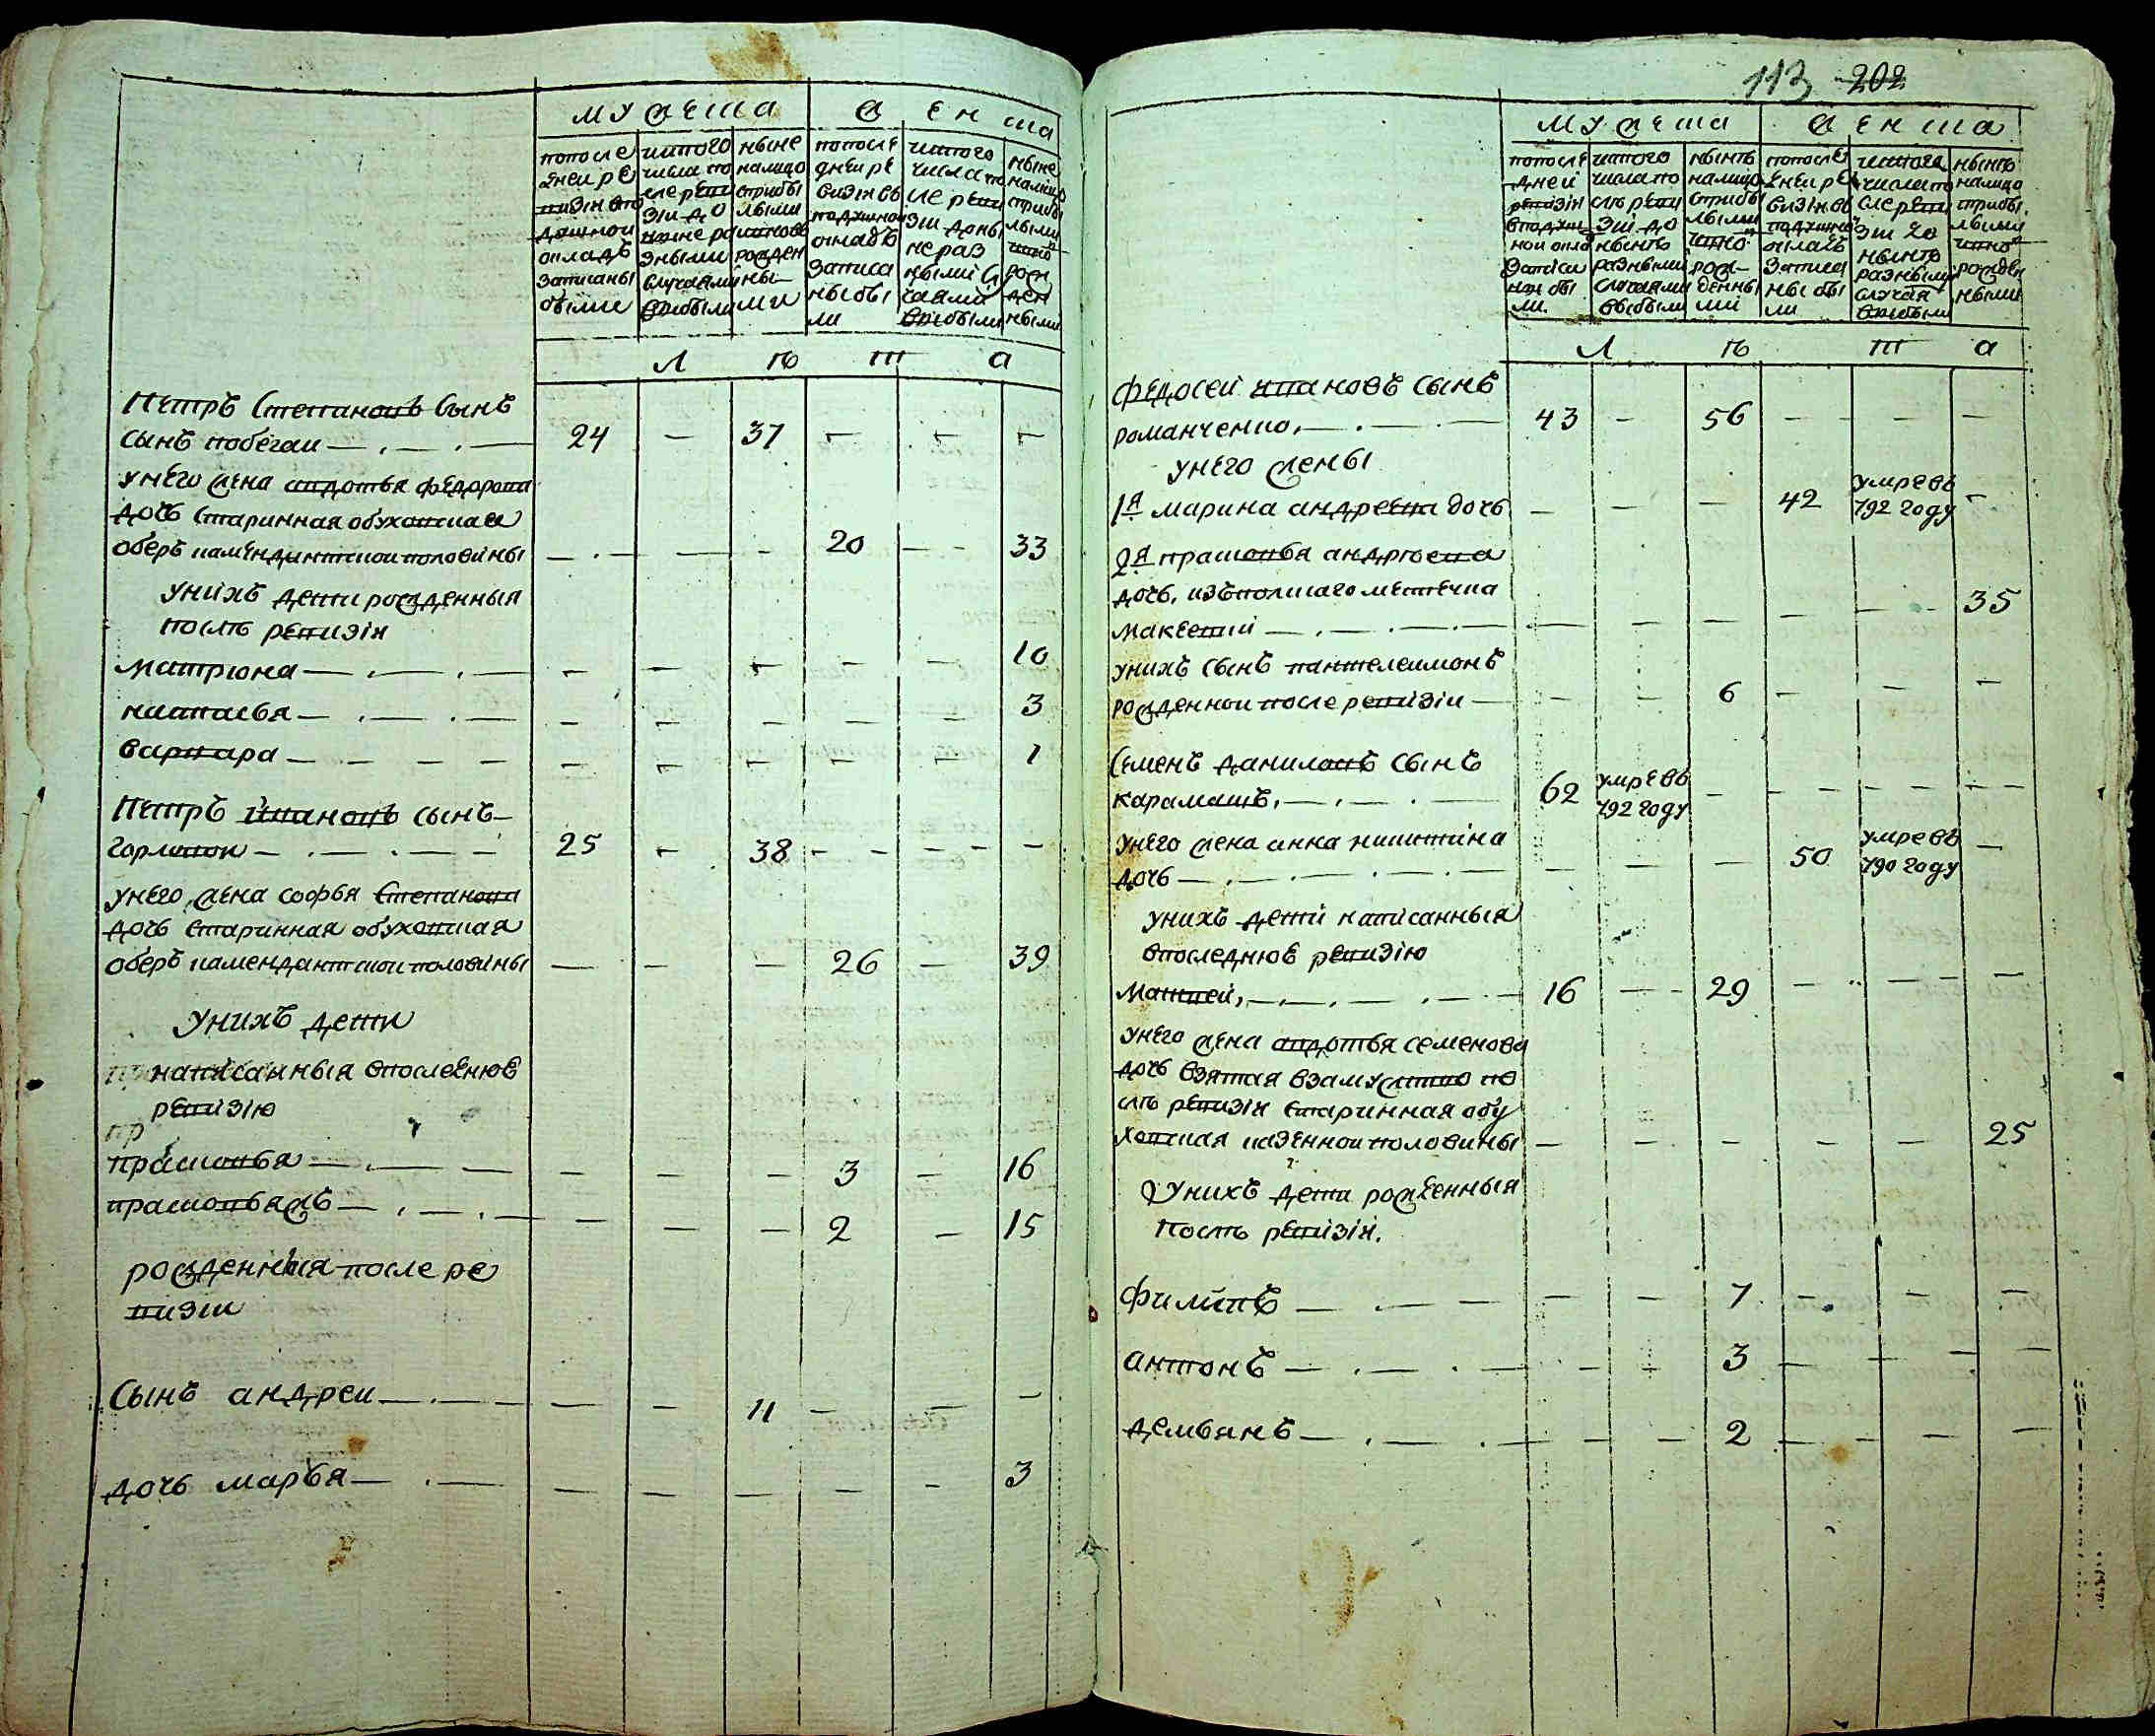 мужеска
женска
попосле
дней ре
визии впо
душной
окладъ
записаны
были
истого
числа по
сле реви
зии до
ныне ра
зными
случаями
выбыли
ныне
налицо
сприбы
лыми
и вновь
рожден
ны
ми
попосле
дней ре
визіи въ
подушной
окладъ
записа
ны бы
ли
истого
числа по
сле реви
зии доны
не раз
ными слу
чаями
выбыли
ныне
налицо
сприбы
лыми
рож
ден
ными
л ѣ т а
Петръ Степановъ сынъ
сынъ побегаи 24 — 37 — — —
унего жена авдотья федорова
дочь старинная обуховская
оберъ камендантской половины — — — 20 — 33
унихъ дети рожденныя
послѣ ревизіи
матрюна — — — — — 10
настасья — — — — — 3
варвара — — — — — 1
Петръ ивановъ сынъ
горлокон 25 — 38 — — —
унего жена софья степанова
дочь старинная обуховская
оберъ камендантской половины — — — 26 — 39
унихъ дети
написанныя впоследнюе
ревизію
пр
прасковья — — — 3 — 16
прасковьяжъ — — — 2 — 15
рожденныя после ре
визіи
Сынъ андреи — — 11 — — —
дочь марья — — — — — 3
113 202
мужеска
женска
попосле
дней
ревизіи
вподуш
ной окла
записа
ны бы
ли.
истого
числа по
слѣ реви
зіи до
нынѣ
разными
случаями
выбыли
нынѣ
налицо
сприбы
лыми
рож
денны
ми
попосле
дней ре
визіи въ
подушно
окладъ
записа
ны бы
ли
истого
числа по
сле реви
зіи до
нынѣ
разными
случая
выбыли
нынѣ
налицо
сприбы
лыми
рожден
ными
л ѣ т а
федосей ивановъ сынъ
романченко. 43 — 56 — — —
унего жены
1я марина андреева дочь — — — 42 умре въ 792 году —
2я прасковья андрѣева
дочь, изъ польскаго местечка
макеевки — — — — — 35
унихъ сынъ пантелеимонъ
рожденной после ревизіи — — 6 — — —
Семенъ даниловъ сынъ
карамашъ, 62 умре въ 792 году — — — —
унего жена анна никитина
дочь — — — 50 умре въ 790 году —
унихъ дети написанныя
впоследнюе ревизію
Матвей, 16 — 29 — — —
унего жена авдотья семенова
дочь взятая взамужство по
слѣ ревизіи старинная обу
ховская казенной половины — — — — — 25
унихъ дети рожденныя
послѣ ревизіи.
филипъ — — 7 — — —
антонъ — — 3 — — —
демьянъ — — 2 — — —